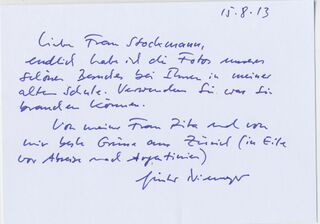 15.8.13
Liebe Frau Stockmann,
endlich habe ich die Fotos unseres
schönen Besuches bei Ihnen in meiner
alten Schule. Verwenden Sie was Sie
brauchen können.
Von meiner Frau Rita und von
mir beste Grüsse aus Zürich (in Eile
vor Abreise nach Argentinien)
Niemeyer